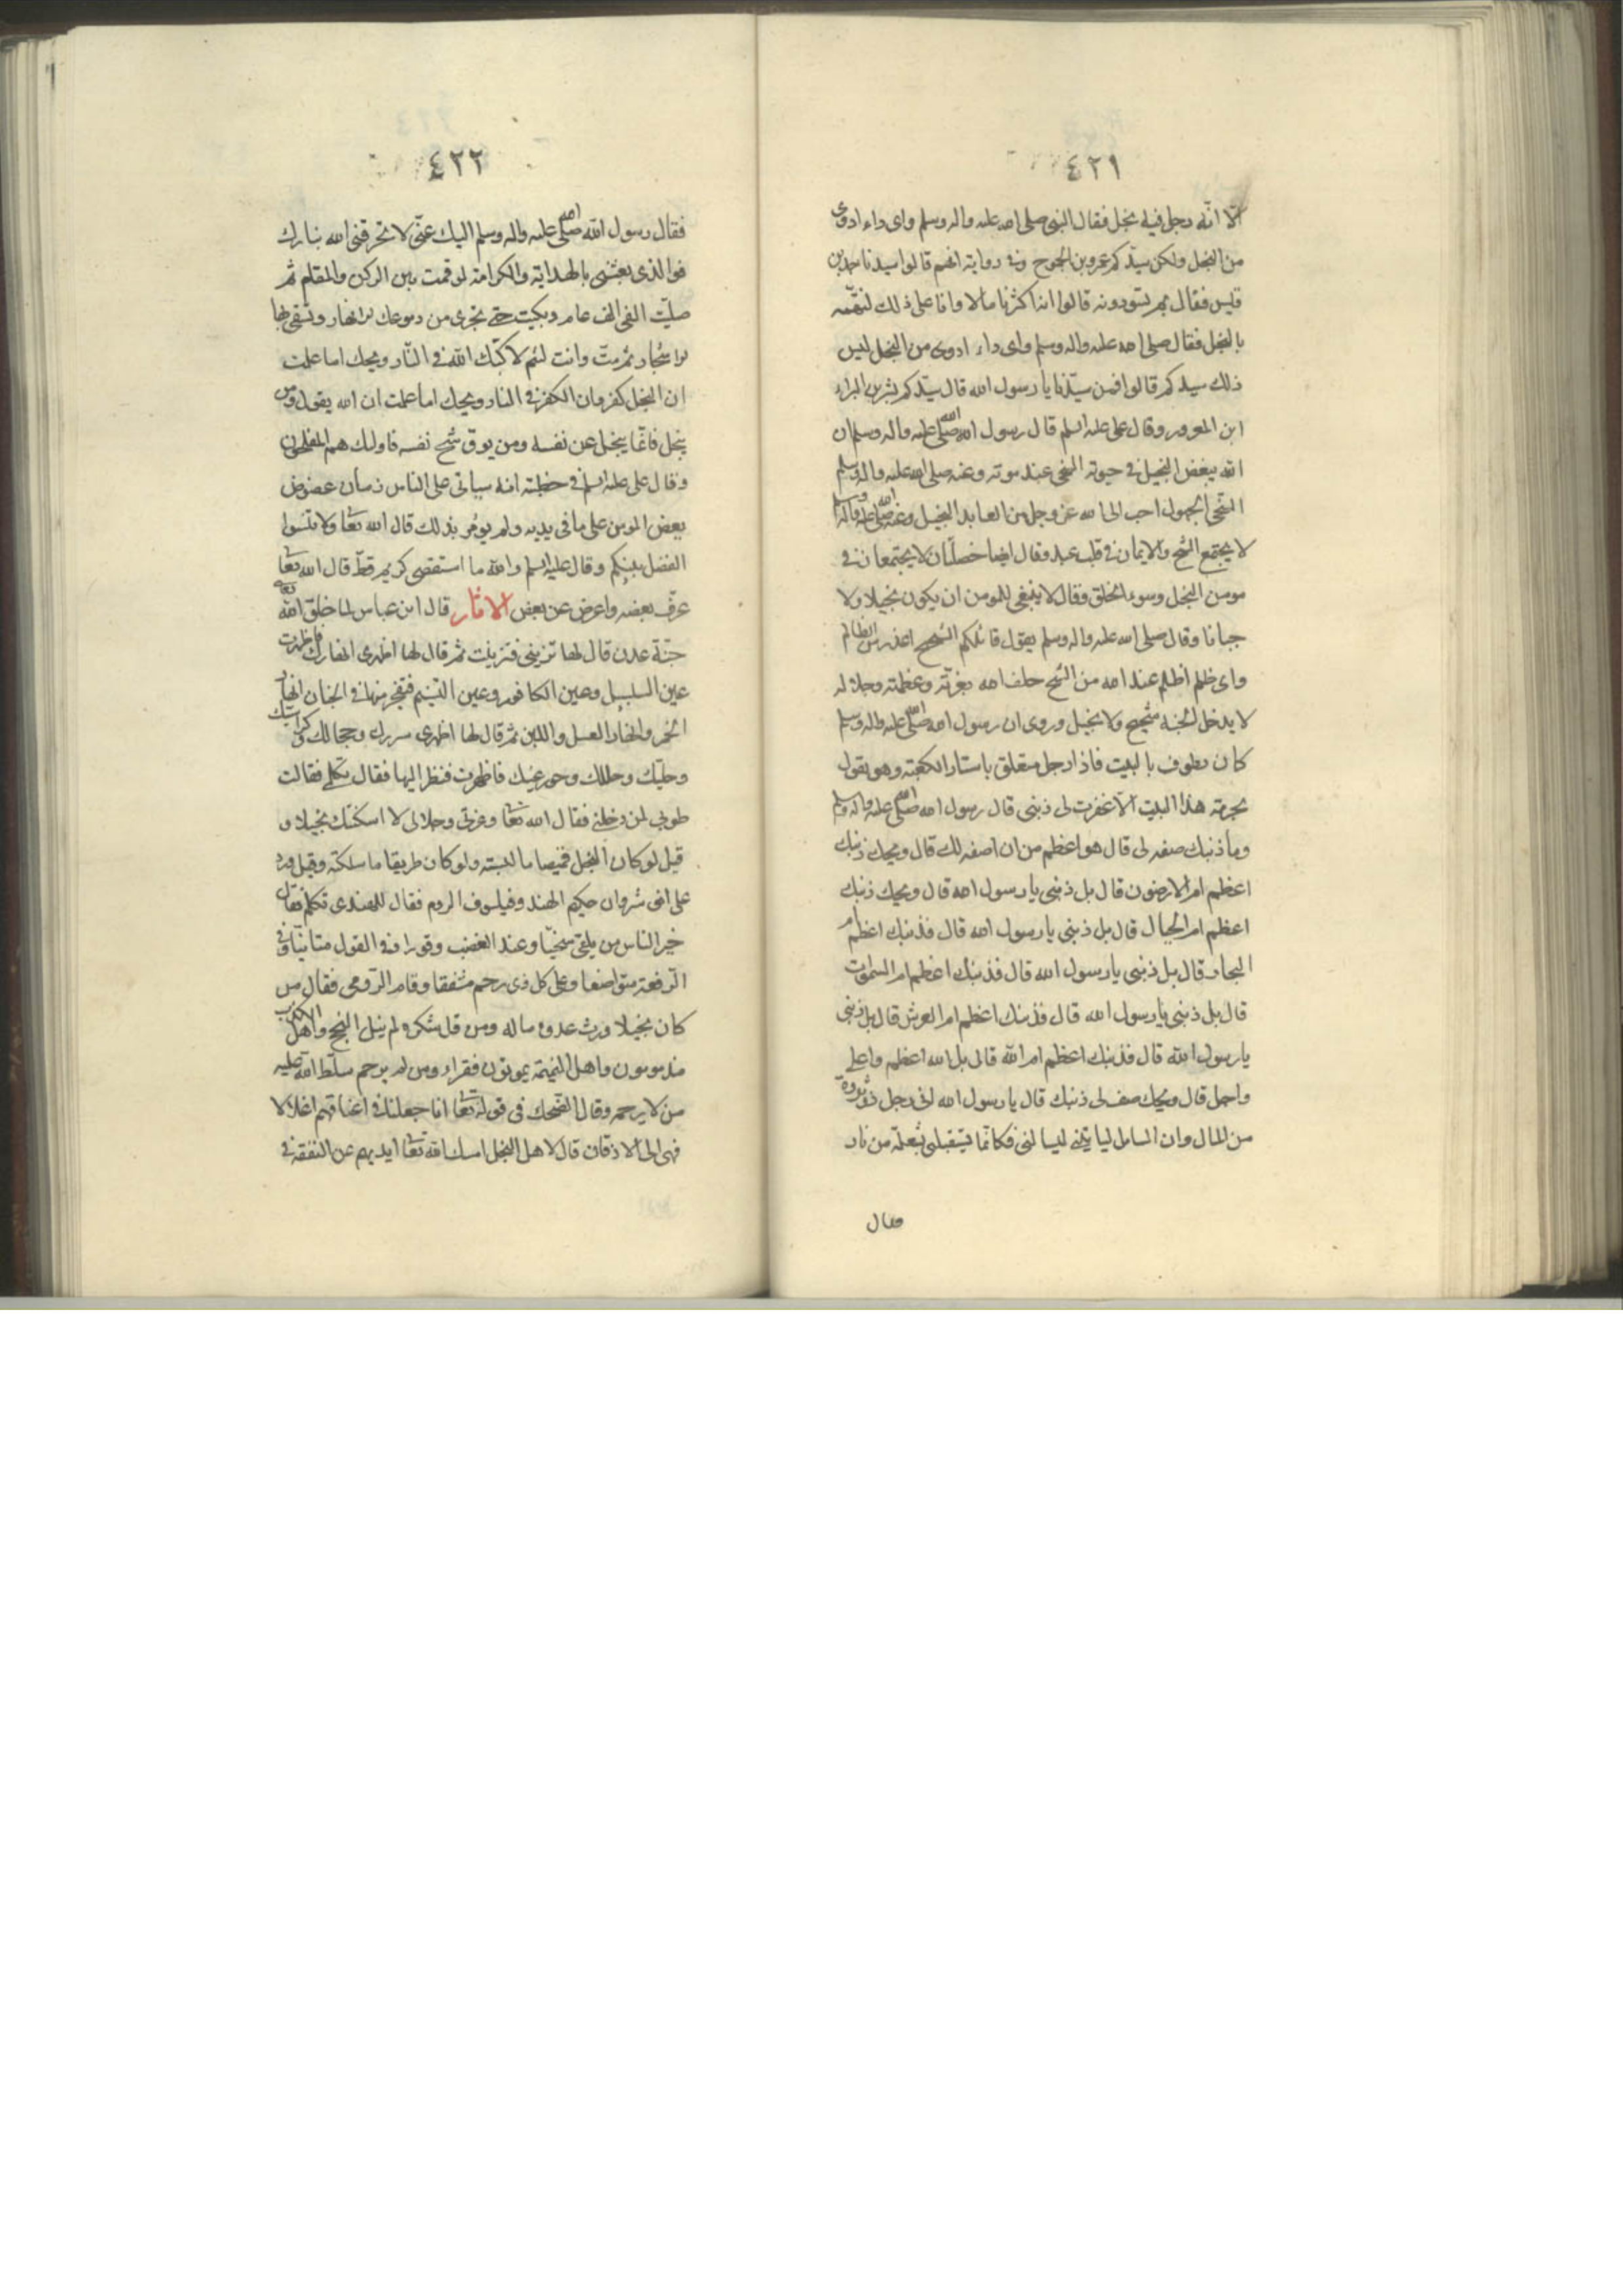 ٤٢١
الّا انّه رجل فيه بخل فقال النبى صلى الله عليه واله وسلم واى داء ادوى
من البخل ولكن سيّدكم عمرو بن الجموح وفى رواية انهم قالوا سيدنا جد بن
قيس فقال بم تسودونه قالوا انه اكثرنا مالا وانا على ذلك لنتهمه
بالبخل فقال صلى الله عليه واله وسلم واى داء ادوى من البخل ليس
ذلك سيدكم قالوا فمن سيّدنا يا رسول الله قال سيّدكم بشر بن البراء
ابن المعرور وقال على عليه السلم قال رسول الله صلى الله عليه واله وسلم ان
الله يبغض البخيل فى حيوته السخى عند موته وعنه صلى الله عليه واله وسلم
السخى الجهول احب الى الله عز وجل من العابد البخيل وعنه صلى الله عليه واله وسلم
لا يجتمع الشح والايمان فى قلب عبد وقال ايضا خصلتان لا يجتمعان فى
مومن البخل وسوء الخلق وقال لا ينبغى للمومن ان يكون بخيلا ولا
جبانا وقال صلى الله عليه واله وسلم يقول قائلكم الشحيح اعذر من الظالم
واى ظلم اظلم عند الله من الشح حلف الله بعزته وعظمته وجلاله
لا يدخل الجنة شحيح ولا بخيل وروى ان رسول الله صلى الله عليه واله وسلم
كان يطوف بالبيت فاذا رجل متعلق باستار الكعبة وهو يقول
بحرمة هذا البيت الّا غفرت لى ذنبى قال رسول الله صلى الله عليه واله وسلم
وما ذنبك صفه لى قال هو اعظم من ان اصفه لك قال ويحك ذنبك
اعظم ام الارضون قال بل ذنبى يا رسول الله قال ويحك ذنبك
اعظم ام الجبال قال بل ذنبى يا رسول الله قال فذنبك اعظم ام
البحار قال بل ذنبى يا رسول الله قال فذنبك اعظم ام السموات
قال بل ذنبى يا رسول الله قال فذنبك اعظم ام العرش قال بل ذنبى
يا رسول الله قال فذنبك اعظم ام الله قال بل الله اعظم واعلى
واجل قال ويحك صف لى ذنبك قال يا رسول الله انى رجل ذو ثروة
من المال وان السائل لياتينى ليسالنى فكانّما يستقبلنى بشعلة من نار
فقال
٤٢٢
فقال رسول الله صلى الله عليه واله وسلم اليك عنّى لا تحرقنى الله بنارك
فوالذى بعثنى بالهداية والكرامة لو قمت بين الركن والمقام ثم
صلّيت الفى الف عام وبكيت حتى تجرى من دموعك الانهار وتسقى بها
الاشجار ثم متّ وانت لئيم لاكبّك الله فى النّار ويحك اما علمت
ان البخل كفر وان الكفر فى النار ويحك اما علمت ان الله يقول ومن
يبخل فانّما يبخل عن نفسه ومن يوق شح نفسه فاولئك هم المفلحون
وقال على عليه السلم فى خطبته انه سياتى على الناس زمان عضوض
يعض المومن على ما فى يديه ولم يومر بذلك قال الله تعا ولا تنسوا
الفضل بينكم وقال عليه السلم والله ما استقضى كريم قطّ قال الله تعا
عرّف بعضه واعرض عن بعض الاثار قال ابن عباس لما خلق الله تعا
جنّة عدن قال لها تزينى فتزينت ثم قال لها اظهرى انهارك فاظهرت
عين السلسبيل وعين الكافور وعين التسنيم فتفجر منها فى الجنان انهار
الخمر وانهار العسل واللبن ثم قال لها اظهرى سررك وحجالك وكراسيك
وحليك وحللك وحور عينك فاظهرت فنظر اليها فقال تكلمى فقالت
طوبى لمن دخلنى فقال الله تعا وعزتى وجلالى لا اسكنتك بخيلا و
قيل لو كان البخل قميصا ما لبسته ولو كان طريقا ما سلكته وقيل ورد
على انوشروان حكيم الهند وفيلسوف الروم فقال للهندى تكلم فقال
خير الناس من يلقى سخيّا وعند الغضب وقورا وفى القول متانيّا وفى
الرّفعة متواضعا وعلى كل ذى رحم مشفقا وقام الرّومى فقال من
كان بخيلا ورث عدوه ماله ومن قل شكره لم ينل النجح واهل الكذب
مذمومون واهل النميمة يموتون فقراء ومن لم يرحم سلّط الله عليه
من لا يرحمه وقال الضّحّاك فى قوله تعا انا جعلنا فى اعناقهم اغلالا
فهى الى الاذقان قال لاهل البخل امسك الله تعا ايديهم عن النفقة فى